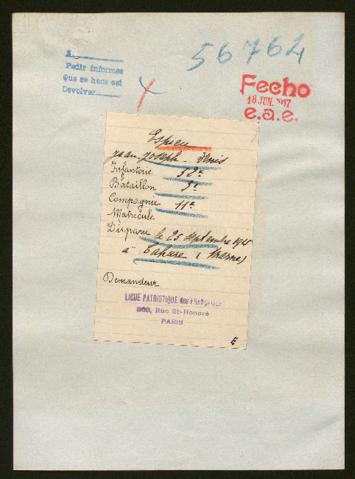 Pedir informes
Que se hace así
Devolver
56764
Fecho
18 JUN. 1917
e.a.e.
Espieu
Jean Joseph - Denis
Infanterie 52e
Bataillon
Compagnie 11e
Matricule
Disparu le 25 septembre 1915
à Tahure (Marne)
Demandeur
LIGUE PATRIOTIQUE
368, Rue St-Honoré
PARIS
E